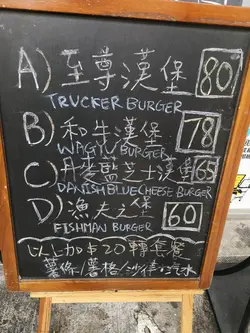 A) 至尊漢堡 80
TRUCKER BURGER
B) 和牛漢堡 78
WAGYU BURGER
C) 丹麥藍芝士漢堡 65
DANISH BLUE CHEESE BURGER
D) 漁夫之堡 60
FISHMAN BURGER
以上加$20轉套餐
薯條/薯格/沙律+汽水